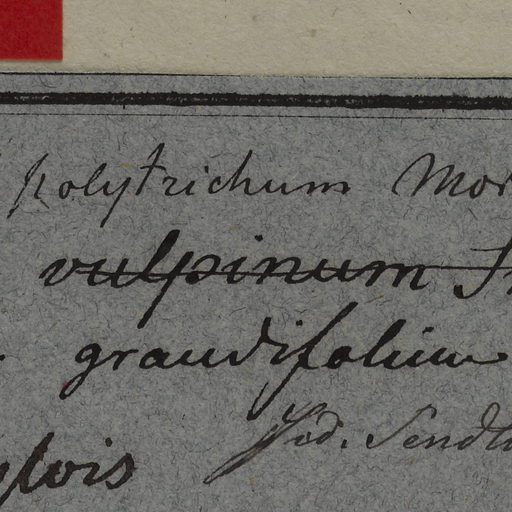 polytrichum Mor
vulpinum
grandifolium
Jod. Sendt
ylvis